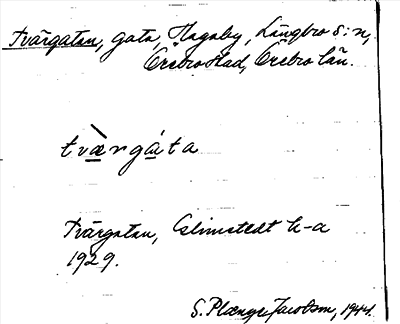 Tvärgatan, gata, Hagaby, Längbro s:n,
Örebro stad, Örebro län.
tvæ̀rgáta
Tvärgatan, Almstedt h-a
1929.
S. Plænge Jacobson, 1944.